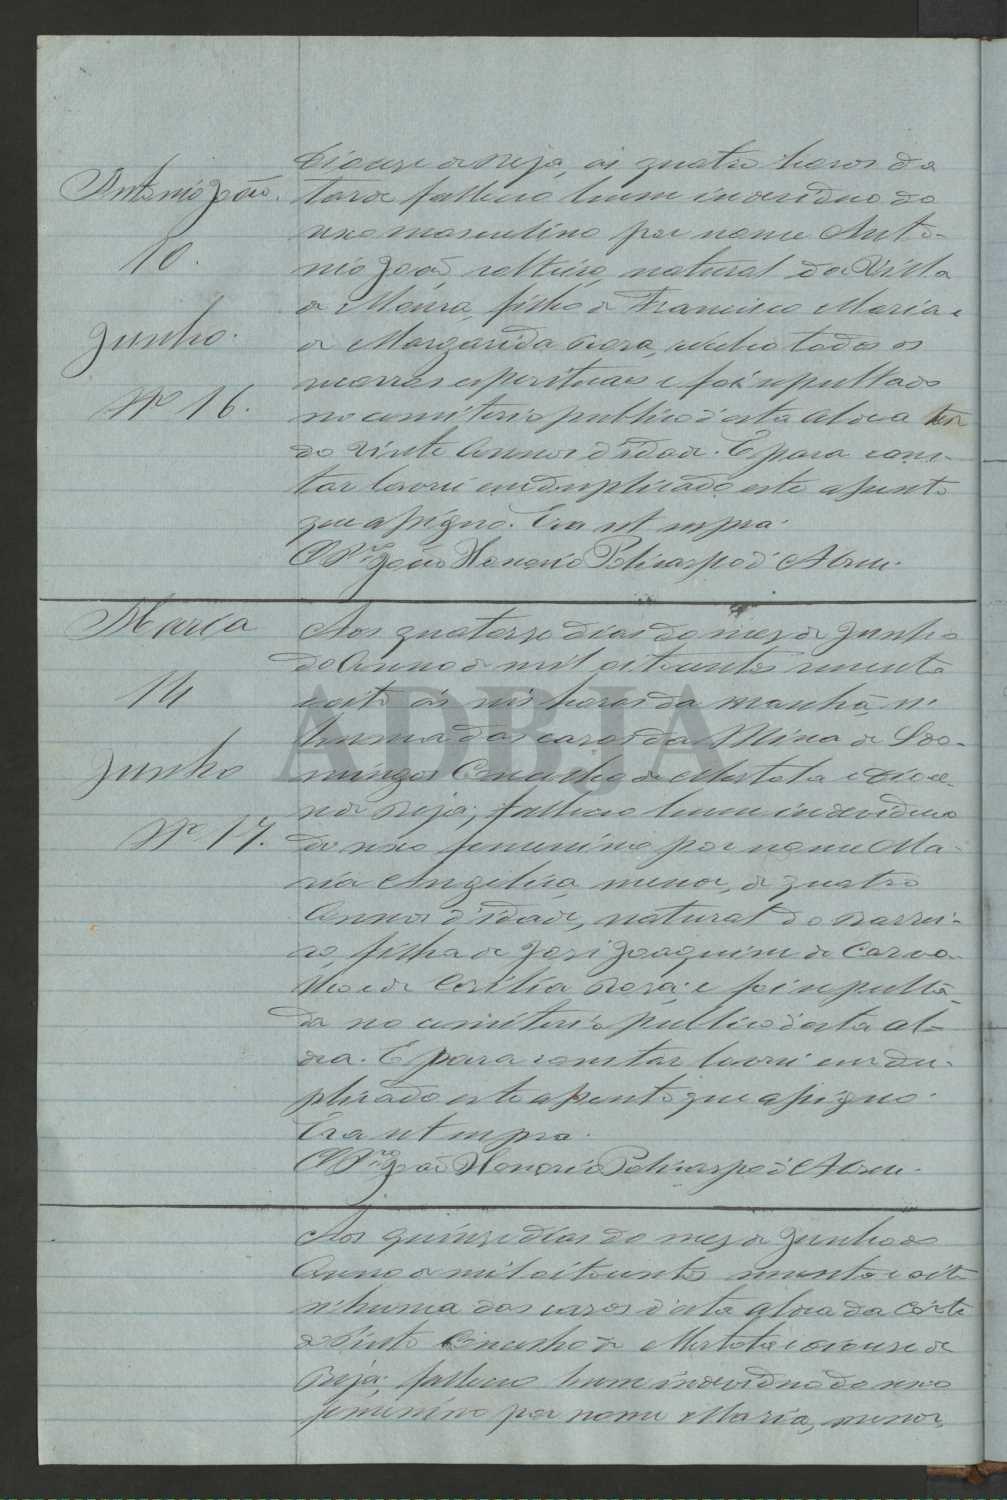 Antonio João.
10.
Junho.
Nº 16.
Diocese de Beja, ás quatro horas da
tarde falleceo hum individuo do
sexo masculino por nome Anto-
nio João solteiro, natural da Villa
de Moura, filho de Francisco Maria e
de Margarida Roza, recebeo todos os
socorros espirituaes e foi sepultado
no cemiterio publico d'esta aldeia ten
do vinte annos d'idade. E para cons-
tar lavrei em duplicado este assento
que assigno. Era ut supra.
O Prior João Honorio Policarpo d'Abreu.
Maria
14
Junho
Nº 17.
Aos quatorze dias do mez de Junho
do anno de mil oitocentos noventa
e oito ás seis horas da manhã, n'
huma das casas da Mina de S. Do-
mingos Concelho de Mertola e Dioce-
se de Beja, falleceo hum individuo
do sexo femenino por nome Ma-
ria Angelica, menor, de quatro
annos d'idade, natural do Barrei-
ro, filha de José Joaquim de Carva-
lho e de Cecilia Roza; e foi sepulta-
da no cemiterio publico d'esta al-
dea. E para constar lavrei em du-
plicado este assento que assigno.
Era ut supra.
O Prior João Honorio Policarpo d'Abreu.
Aos quinze dias do mez de Junho do
anno de mil oitocentos noventa e oito
n'huma das casas d'esta aldea da Corte
do Pinto Concelho de Mertola e Diocese de
Beja, falleceo hum individuo do sexo
femenino por nome Maria, menor,
ADBJA